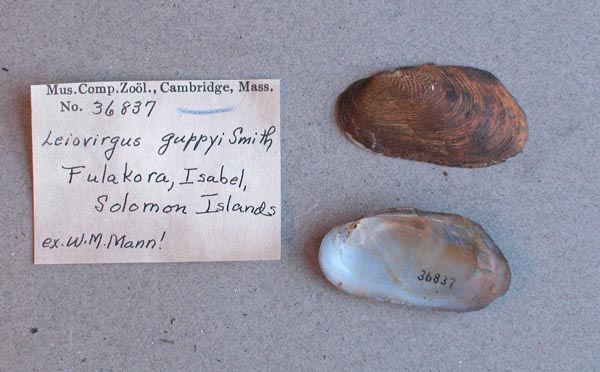 Mus.Comp.Zoöl., Cambridge, Mass.
No. 36837
Leiovirgus guppyi Smith
Fulakora, Isabel,
Solomon Islands
ex. W.M.Mann!
36837